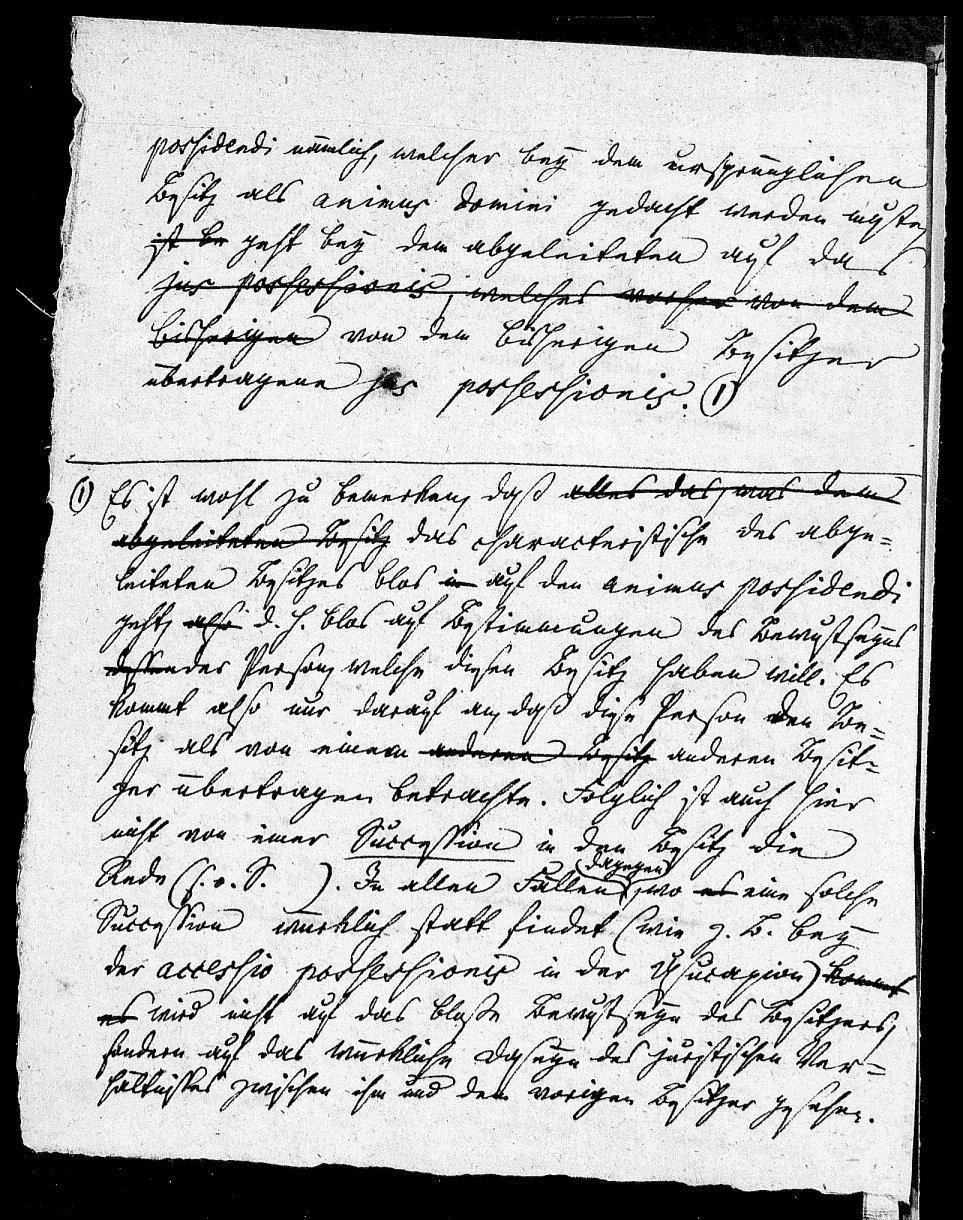 possidendi nämlich, welcher bey dem ursprünglichen
Besitz als animus domini gedacht werden muste,
ist be geht bey dem abgeleiteten auf das
jus possessionis, welches vorher von dem
bisherigen von dem bisherigen Besitzer
übertragene jus possessionis. (1)
(1) Es ist wohl zu bemerken, daß alles das, was dem
abgeleiteten Besitz das characteristische des abge=
leiteten Besitzes blos in auf den animus possidendi
geht, also d. h. blos auf Bestimmungen des Bewustseyns
dessen der Person, welche diesen Besitz haben will. Es
kommt also nur darauf an, daß diese Person den Be=
sitz als von einem anderen Besitz anderen Besit=
zer übertragen betrachte. Folglich ist auch hier
nicht von einer Succession in den Besitz die
Rede (s. o. S. ). In allen Fällen dagegen, wo es eine solche
Succession würklich statt findet (wie z. B. bey
der accessio possessionis in der Usucapion) kommt
es wird nicht auf das bloße Bewustseyn des Besitzers,
sondern auf das würkliche Daseyn des juristischen Ver=
hältnisses zwischen ihm und dem vorigen Besitzer gesehen.